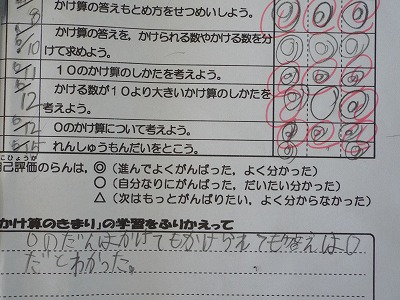 8 かけ算の答えもとめ方をせつめいしよう。
6/10 かけ算の答えを，かけられる数やかける数を分けて求めよう。
6/11 １０のかけ算のしかたを考えよう。
6/12 かける数が１０より大きいかけ算のしかたを考えよう。
6/12 ０のかけ算について考えよう。
6/15 れんしゅうもんだいをとこう。
こひょうか
己評価のらんは，◎（進んでよくがんばった，よく分かった）
○（自分なりにがんばった，だいたい分かった）
△（次はもっとがんばりたい，よく分からなかった）
かけ算のきまり」の学習をふりかえって
0のだんはかけてもかけられても答えは0
だとわかった。